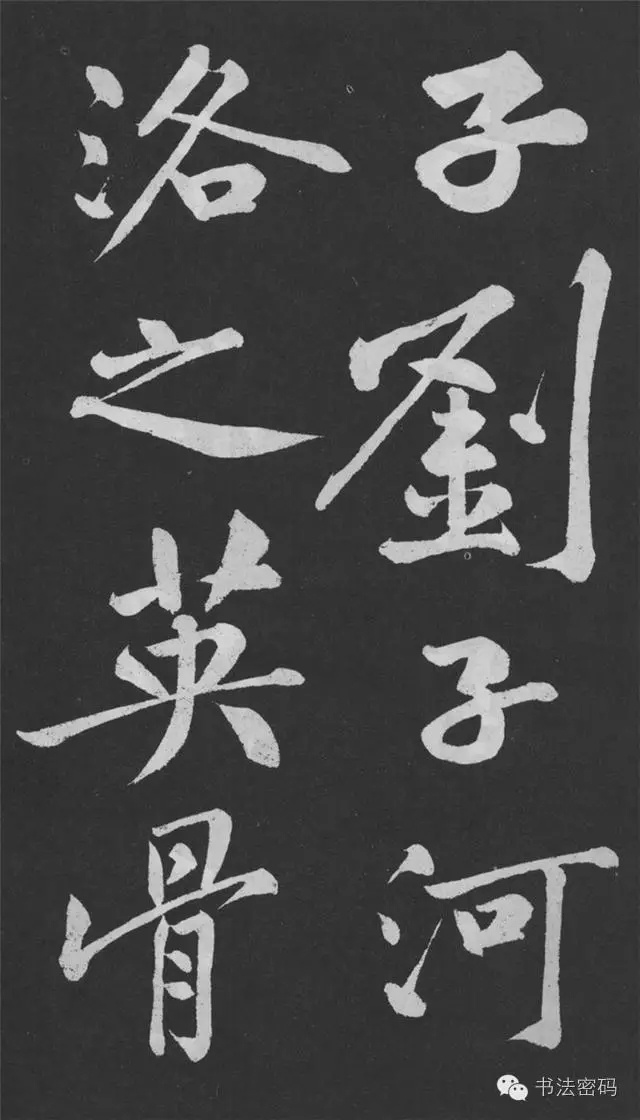 子劉子河
洛之英骨
书法密码